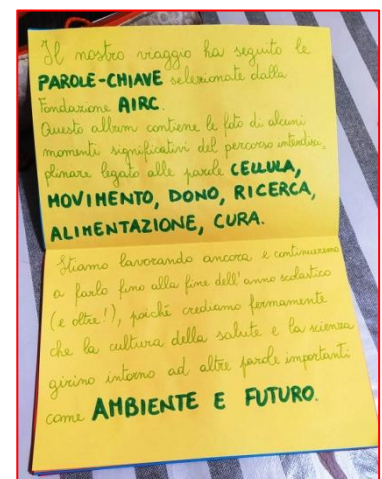 Il nostro viaggio ha seguito le
PAROLE-CHIAVE selezionate dalla
Fondazione AIRC.
Questo album contiene le foto di alcuni
momenti significativi del percorso interdisci,
plinare legato alle parole CELLULA,
MOVIMENTO, DONO, RICERCA,
ALIMENTAZIONE, CURA.
Stiamo lavorando ancora e continueremo
a farlo fino alla fine dell'anno scolastico
(e oltre!), poiché crediamo fermamente
che la cultura della salute e la scienza
girino intorno ad altre parole importanti
come AMBIENTE E FUTURO.